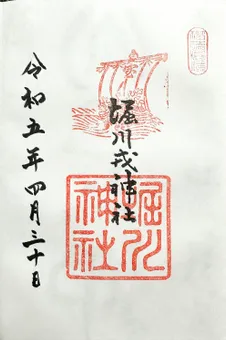 堀川戎神社
令和五年四月三十日
堀川
神社